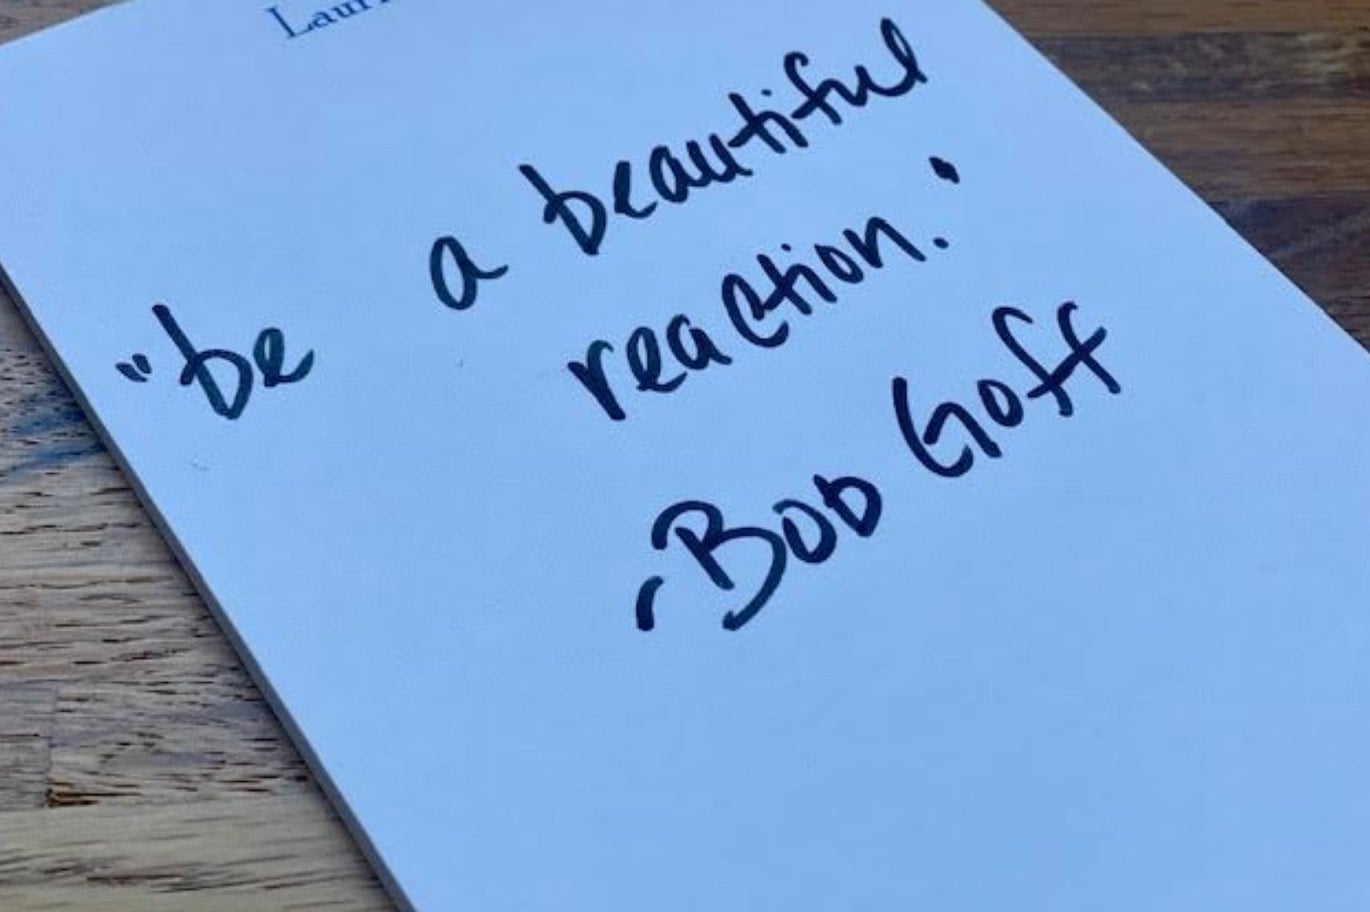 "be a beautiful
reaction."
-Bob Goff